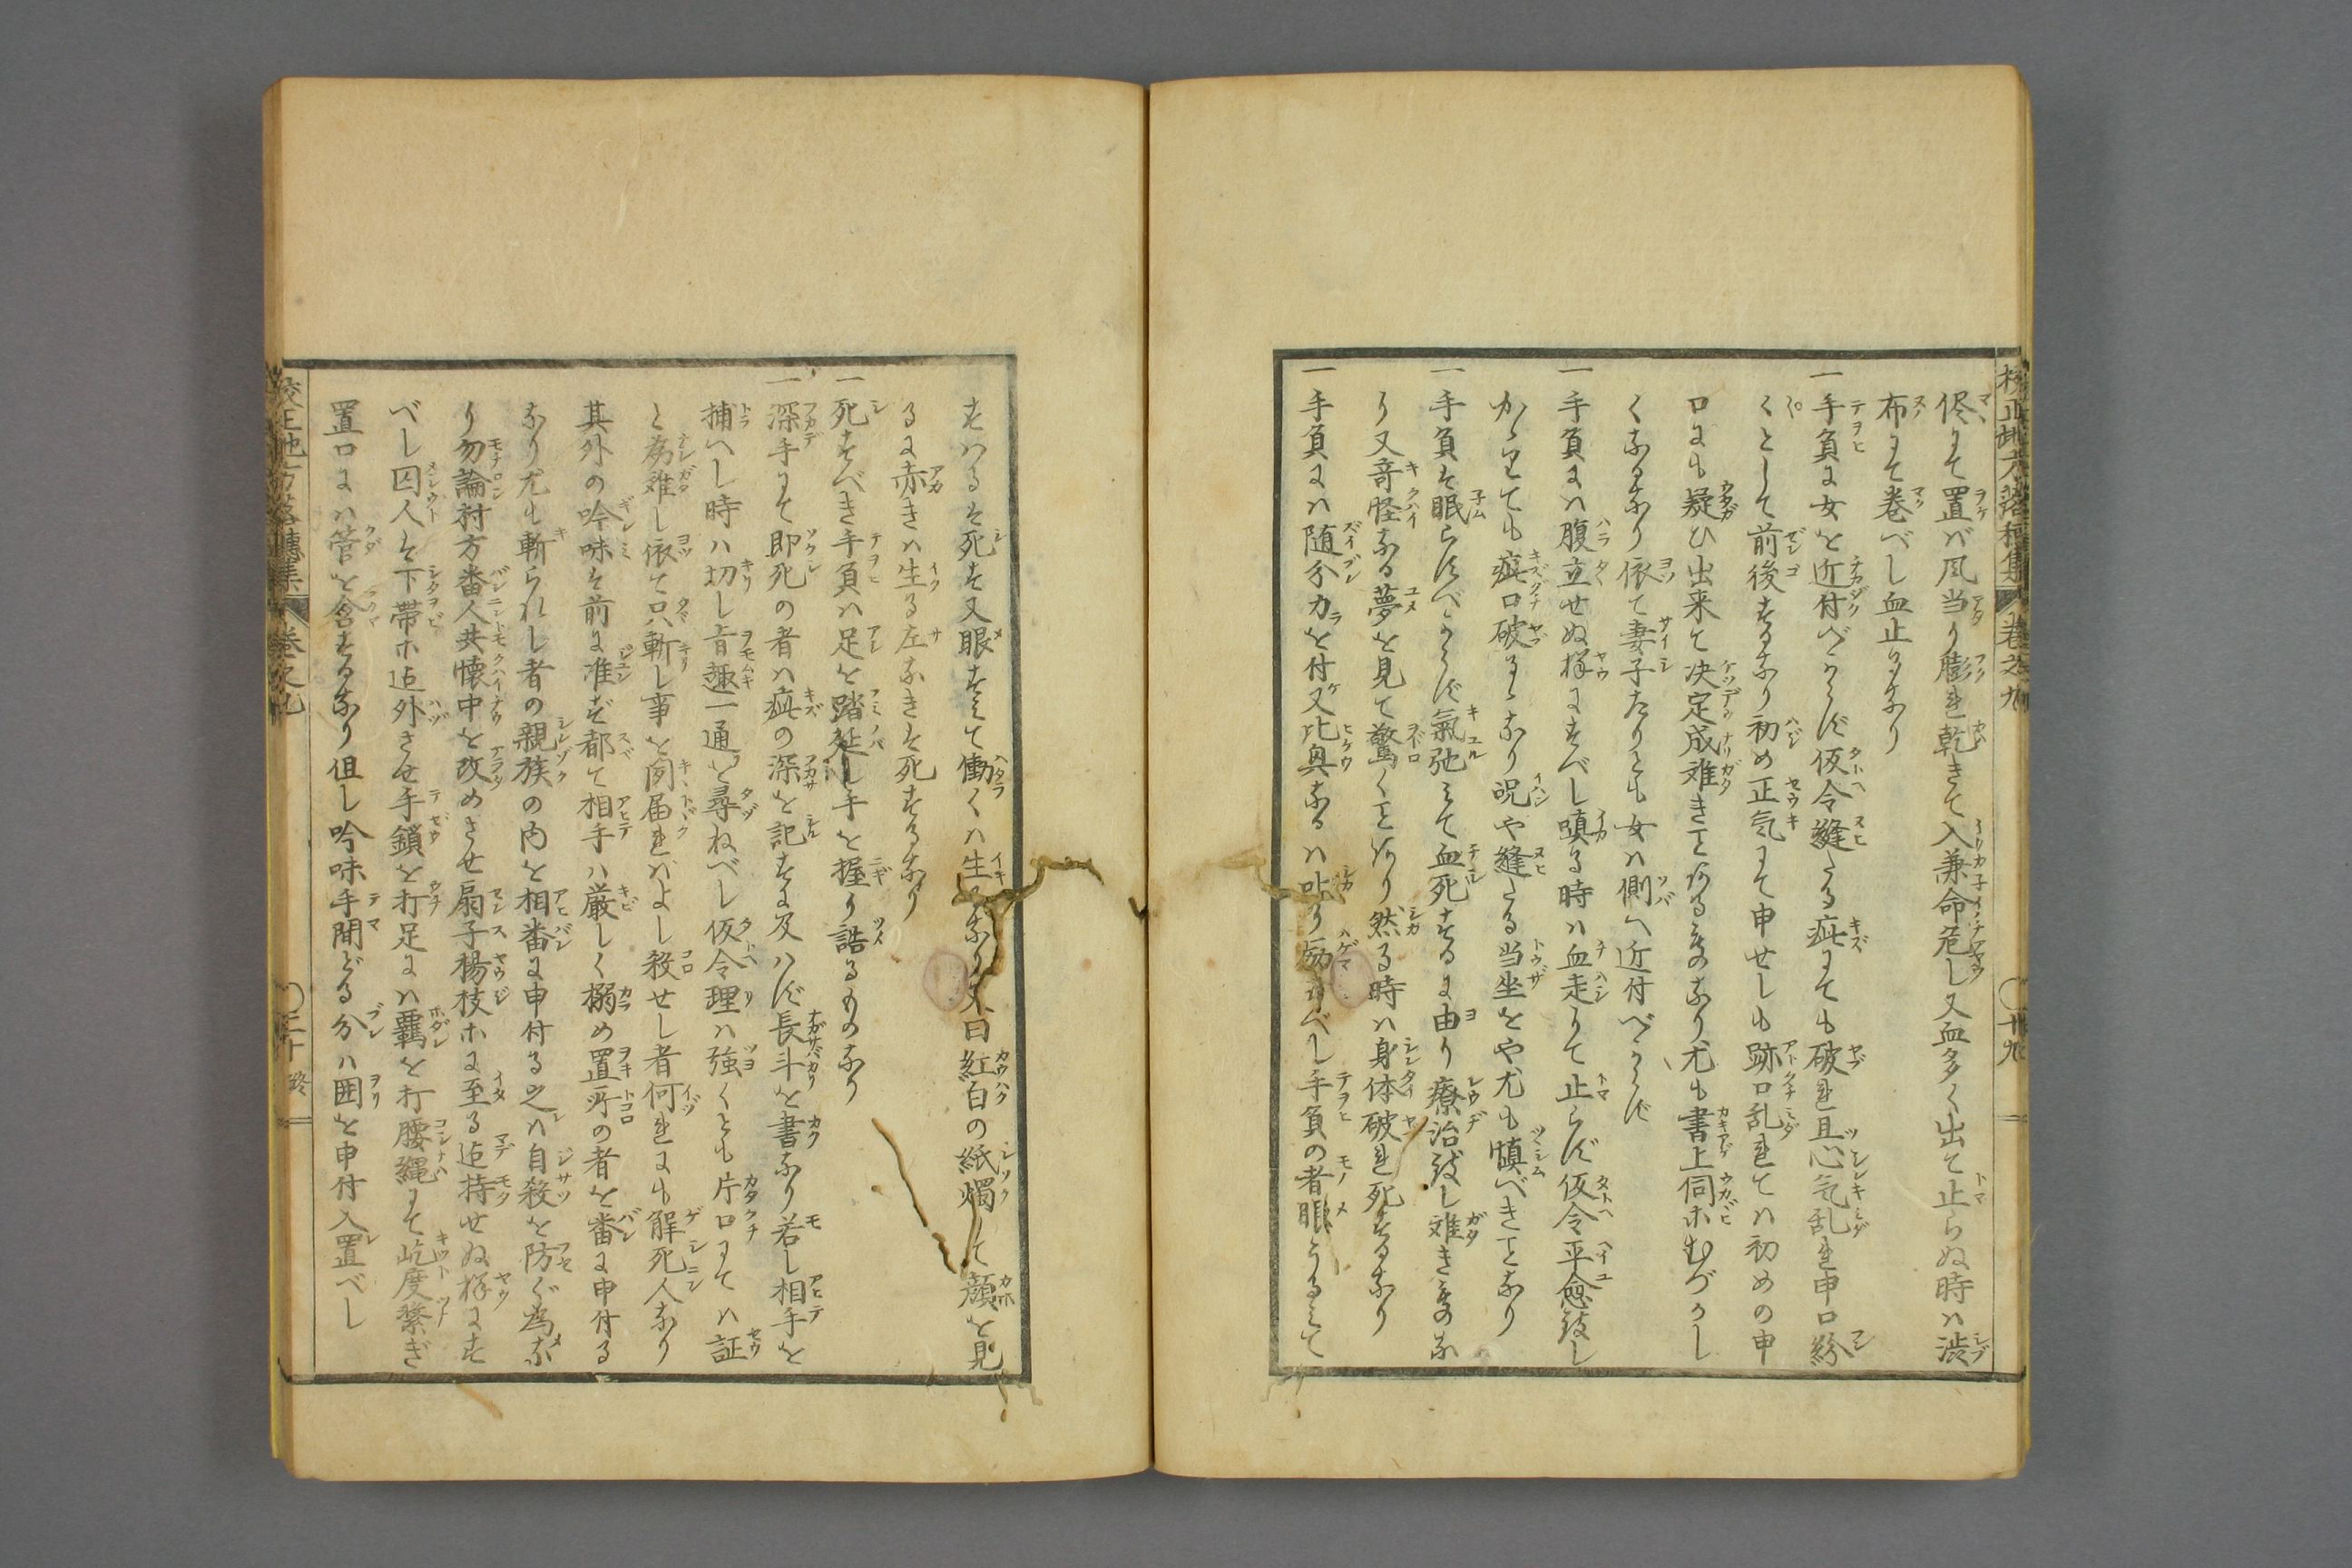 校正地方落穂集 巻之九 〇廿九
侭にて置ば風当り膨れ乾きて入兼命危し又血多く出て止らぬ時ハ渋
布にて巻べし血止るなり
一手負に女を近付べからず仮令縫たる疵にても破れ且心気乱れ申口紛
くとして前後するなり初め正気にて申せしも跡口乱れてハ初めの申
口にも疑ひ出来て決定成难きとある事のなり尤も書上伺ホむづかし
くなるなり依て妻子たりとも女ハ側へ近付べからず
一手負にハ腹立せぬ様にすべし嗔る時ハ血走りて止らず仮令平愈致し
かゝりても疵口破るゝなり况や縫たる当坐をや尤も慎べきとなり
一手負を眠らすべからず氣弛ミて血死するに由り療治致し难き事のな
り又竒怪なる夢を見て驚くとあり然る時ハ身体破れ死するなり
一手負にハ随分力を付又比興なるハ𠮟り励ますべし手負の者眼うるミて
すハるを死す又眼すミて働くハ生るなり又曰紅白の紙燭にて顔を見
るに赤きハ生る左なきを死するなり
一死すべき手負ハ足を踏延し手を握り誥るものなり
一深手にて即死の者ハ疵の深を記すに及ハず長斗を書なり若し相手を
捕へし時ハ切し旨趣一通を尋ねべし仮令理ハ強くとも片口にてハ証
と為难し依て只斬し事を聞届れバよし殺せし者何れにも解死人なり
其外の吟味を前に准ず都て相手ハ厳しく搦め置所の者を番に申付る
なり尤も斬られし者の親族の内を相番に申付る之ハ自殺を防ぐ為な
り勿論村方番人共懐中を改めさせ扇子楊枝ホに至る迄持せぬ様にす
べし囚人を下帯ホ迄外させ手鎖を打足にハ羈を打腰縄にて屹度繋ぎ
置口にハ管を含するなり但し吟味手間どる分ハ囲を申付入置べし
校正地方落穂集 巻之九 〇三十終